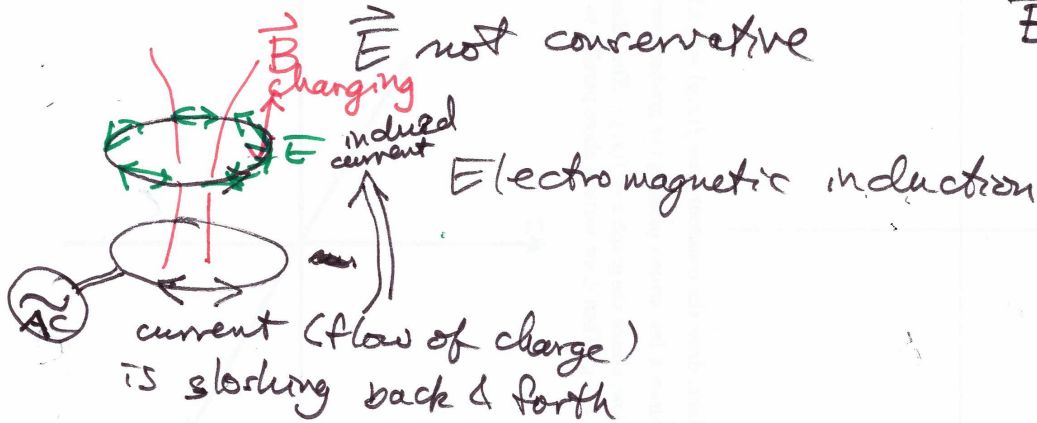 B⃗ E⃗ not conservative E⃗
changing
E⃗ induced
current
Electromagnetic induction
AC
current (flow of charge)
is sloshing back & forth